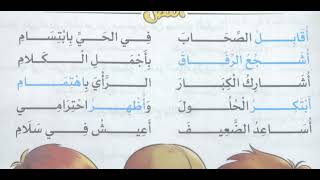 أُقَابِلُ الصِّحَابَ فِي الحَيِّ بِابْتِسَامِ
أُشَجِّعُ الرِّفَاقَ بِأَجْمَلِ الكَلَامِ
أُشَارِكُ الكِبَارَ الرَّأْيَ بِاهْتِمَامِ
أَبْتَكِرُ الحُلُولَ وَأُظْهِرُ احْتِرَامِي
أُسَاعِدُ الضَّعِيفَ أَعِيشُ فِي سَلَامِ